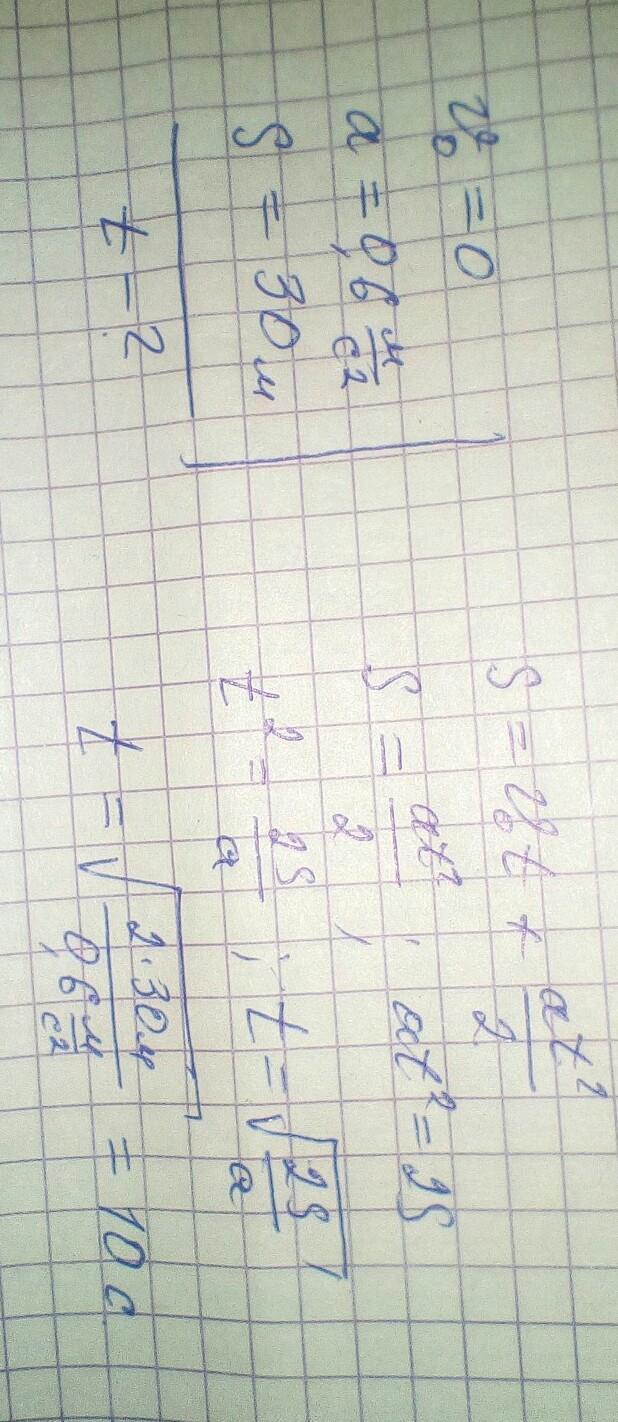 v₀ = 0
a = 0,6 м/с²
S = 30 м
t – ?
S = v₀t + at²/2
S = at²/2 ; at² = 2S
t² = 2S/a ; t = √(2S/a)
t = √(2·30м / 0,6 м/с²) = 10 с